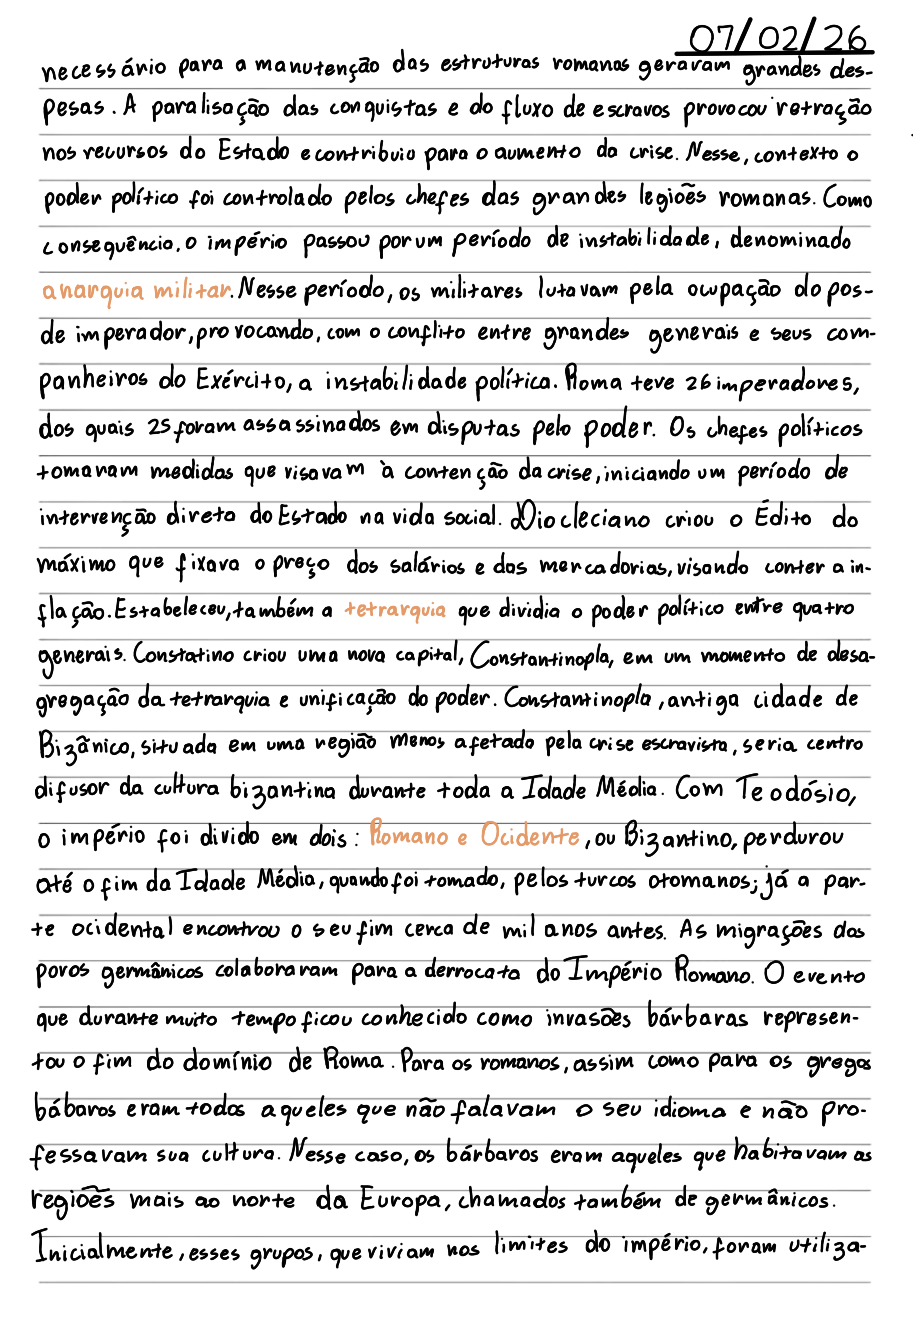 07/02/26
necessário para a manutenção das estruturas romanas geravam grandes des-
pesas. A paralisação das conquistas e do fluxo de escravos provocou retração
nos recursos do Estado e contribuio para o aumento da crise. Nesse, contexto o
poder político foi controlado pelos chefes das grandes legiões romanas. Como
consequência, o império passou por um período de instabilidade, denominado
anarquia militar. Nesse período, os militares lutavam pela ocupação do pos-
de imperador, provocando, com o conflito entre grandes generais e seus com-
panheiros do Exército, a instabilidade política. Roma teve 26 imperadores,
dos quais 25 foram assassinados em disputas pelo poder. Os chefes políticos
tomavam medidas que visavam à contenção da crise, iniciando um período de
intervenção direta do Estado na vida social. Diocleciano criou o Édito do
máximo que fixava o preço dos salários e das mercadorias, visando conter a in-
flação. Estabeleceu, também a tetrarquia que dividia o poder político entre quatro
generais. Constatino criou uma nova capital, Constantinopla, em um momento de desa-
gregação da tetrarquia e unificação do poder. Constantinopla, antiga cidade de
Bizânico, situada em uma região menos afetado pela crise escravista, seria centro
difusor da cultura bizantina durante toda a Idade Média. Com Teodósio,
o império foi divido em dois: Romano e Ocidente, ou Bizantino, perdurou
até o fim da Idade Média, quando foi tomado, pelos turcos otomanos; já a par-
te ocidental encontrou o seu fim cerca de mil anos antes. As migrações dos
povos germânicos colaboravam para a derrocata do Império Romano. O evento
que durante muito tempo ficou conhecido como invasões bárbaras represen-
tou o fim do domínio de Roma. Para os romanos, assim como para os gregos
bábaros eram todos aqueles que não falavam o seu idioma e não pro-
fessavam sua cultura. Nesse caso, os bárbaros eram aqueles que habitavam as
regiões mais ao norte da Europa, chamados também de germânicos.
Inicialmente, esses grupos, que viviam nos limites do império, foram utiliza-